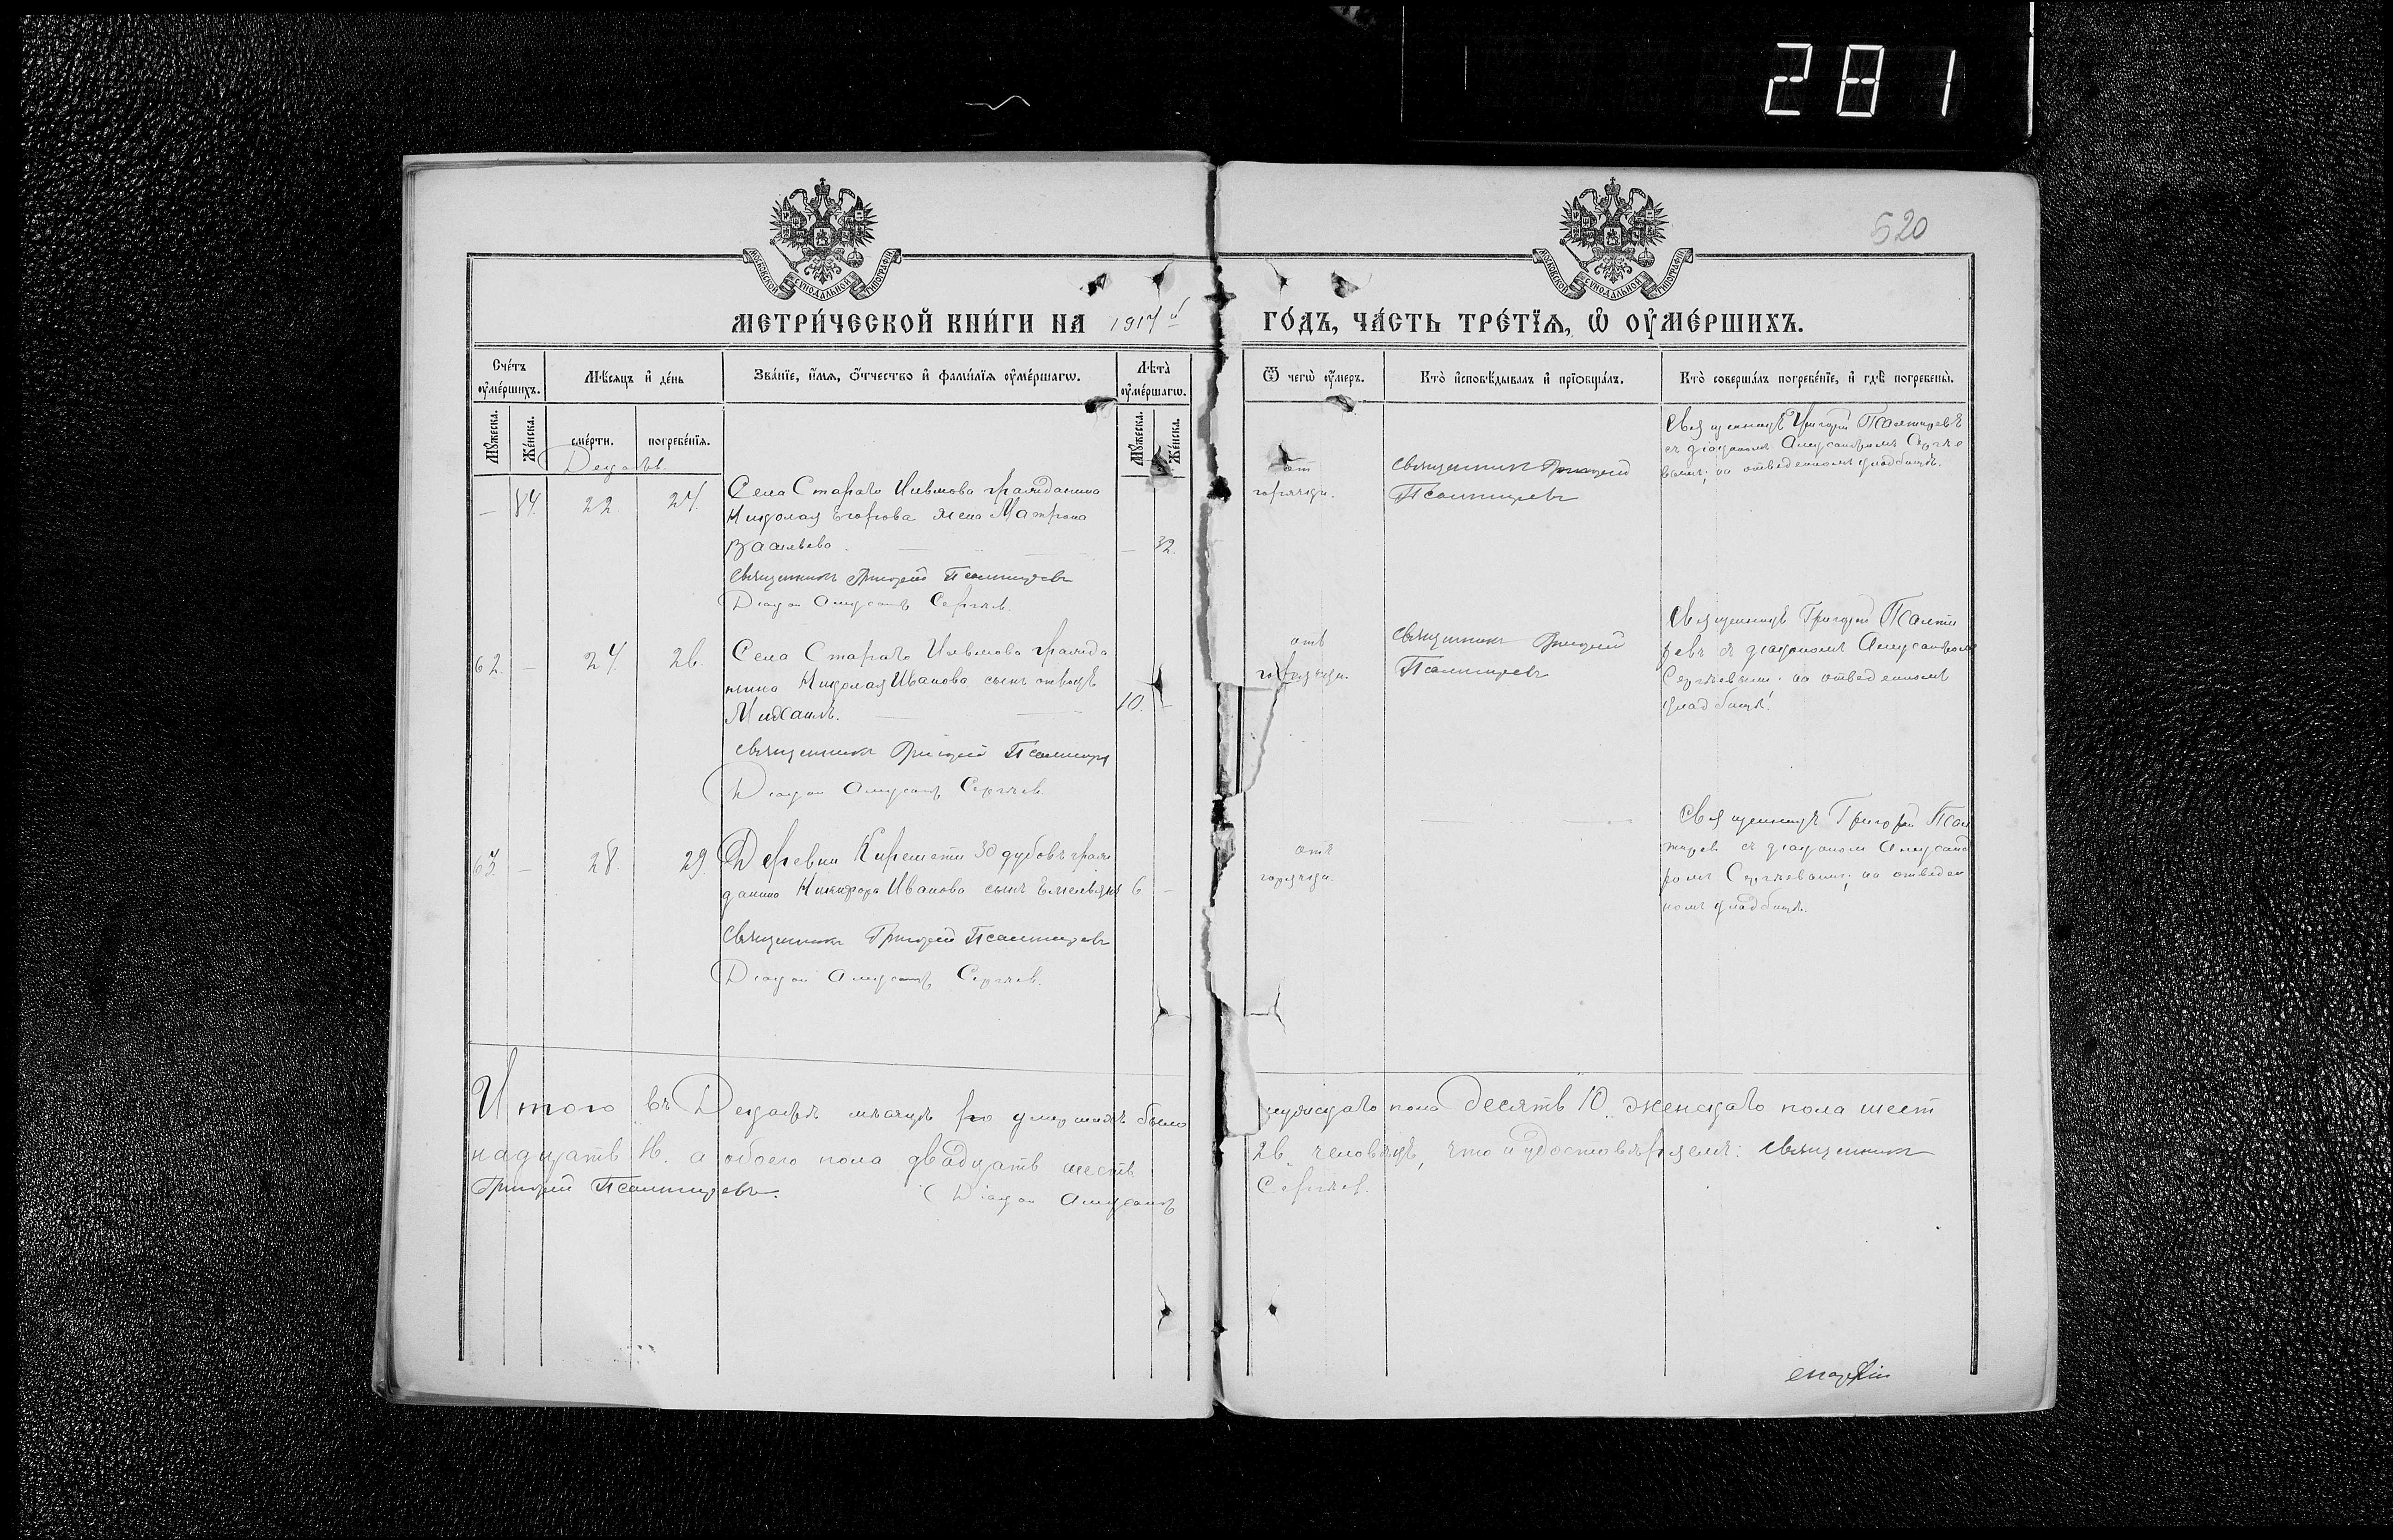 281
520
МОСКОВСКОЙ СѴНОДАЛЬНОЙ ТИПОГРАФІИ
МОСКОВСКОЙ СѴНОДАЛЬНОЙ ТИПОГРАФІИ
МЕТРИ́ЧЕСКОЙ КНИ́ГИ НА 1917 й ГО́ДЪ, ЧА́СТЬ ТРЕ́ТЇѦ, Ѡ҆ ОУ҆МЕ́РШИХЪ.
Сче́тъ оу҆ме́ршихъ.
Мѣ́сѧцъ и҆ де́нь
Зва́нїе, и҆́мѧ, ѻ҆́тчество и҆ фами́лїѧ оу҆ме́ршагѡ.
Лѣ́та̀ оу҆ме́ршагѡ.
Ѿ чегѡ̀ оу҆́меръ.
Кто̀ и҆сповѣ́дывалъ и҆ прїѻбща́лъ.
Кто̀ соверша́лъ погребе́нїе, и҆ гдѣ̀ погребены̀.
Мꙋ́жеска.
Же́нска.
сме́рти.
погребе́нїѧ.
Мꙋ́жеска.
Же́нска.
Декабрь.
— 84. 22. 24.
Села Стараго Ильмова гражданина
Николая Егорова жена Матрона
Васильева. — 32.
священникъ Григорій Псалтиревъ
Діаконъ Александръ Сергѣев.
от
горячки.
священникъ Григорій
Псалтиревъ
Священникъ Григорій Псалтиревъ
съ діакономъ Александромъ Сергѣе
вымъ; на отведенномъ кладбищѣ.
62. — 24. 26.
Села Стараго Ильмова гражда
нина Николая Иванова сынъ отрокъ
Михаилъ. 10. —
священникъ Григорій Псалтирев
Діаконъ Александръ Сергѣев.
отъ
горячки.
священникъ Григорій
Псалтиревъ
Священникъ Григорій Псалти
ревъ съ діакономъ Александромъ
Сергѣевымъ; на отведенномъ
кладбищѣ.
63. — 28. 29.
Деревни Киремети 30 дубовъ граж
данина Никифора Иванова сынъ Емельянъ 6 —
священникъ Григорій Псалтиревъ
Діаконъ Александръ Сергѣев.
отъ
горячки.
Священникъ Григорій Псал
тиревъ съ діакономъ Александ
ромъ Сергѣевымъ; на отведен
номъ кладбищѣ.
Итого въ Декабрѣ мѣсяцѣ умершихъ было мужскаго пола десять 10. женскаго пола шест
надцать 16. а обоего пола двадцать шесть 26. человѣкъ, что и удостовѣряемъ: священникъ
Григорій Псалтиревъ. Діаконъ Александръ Сергѣев.